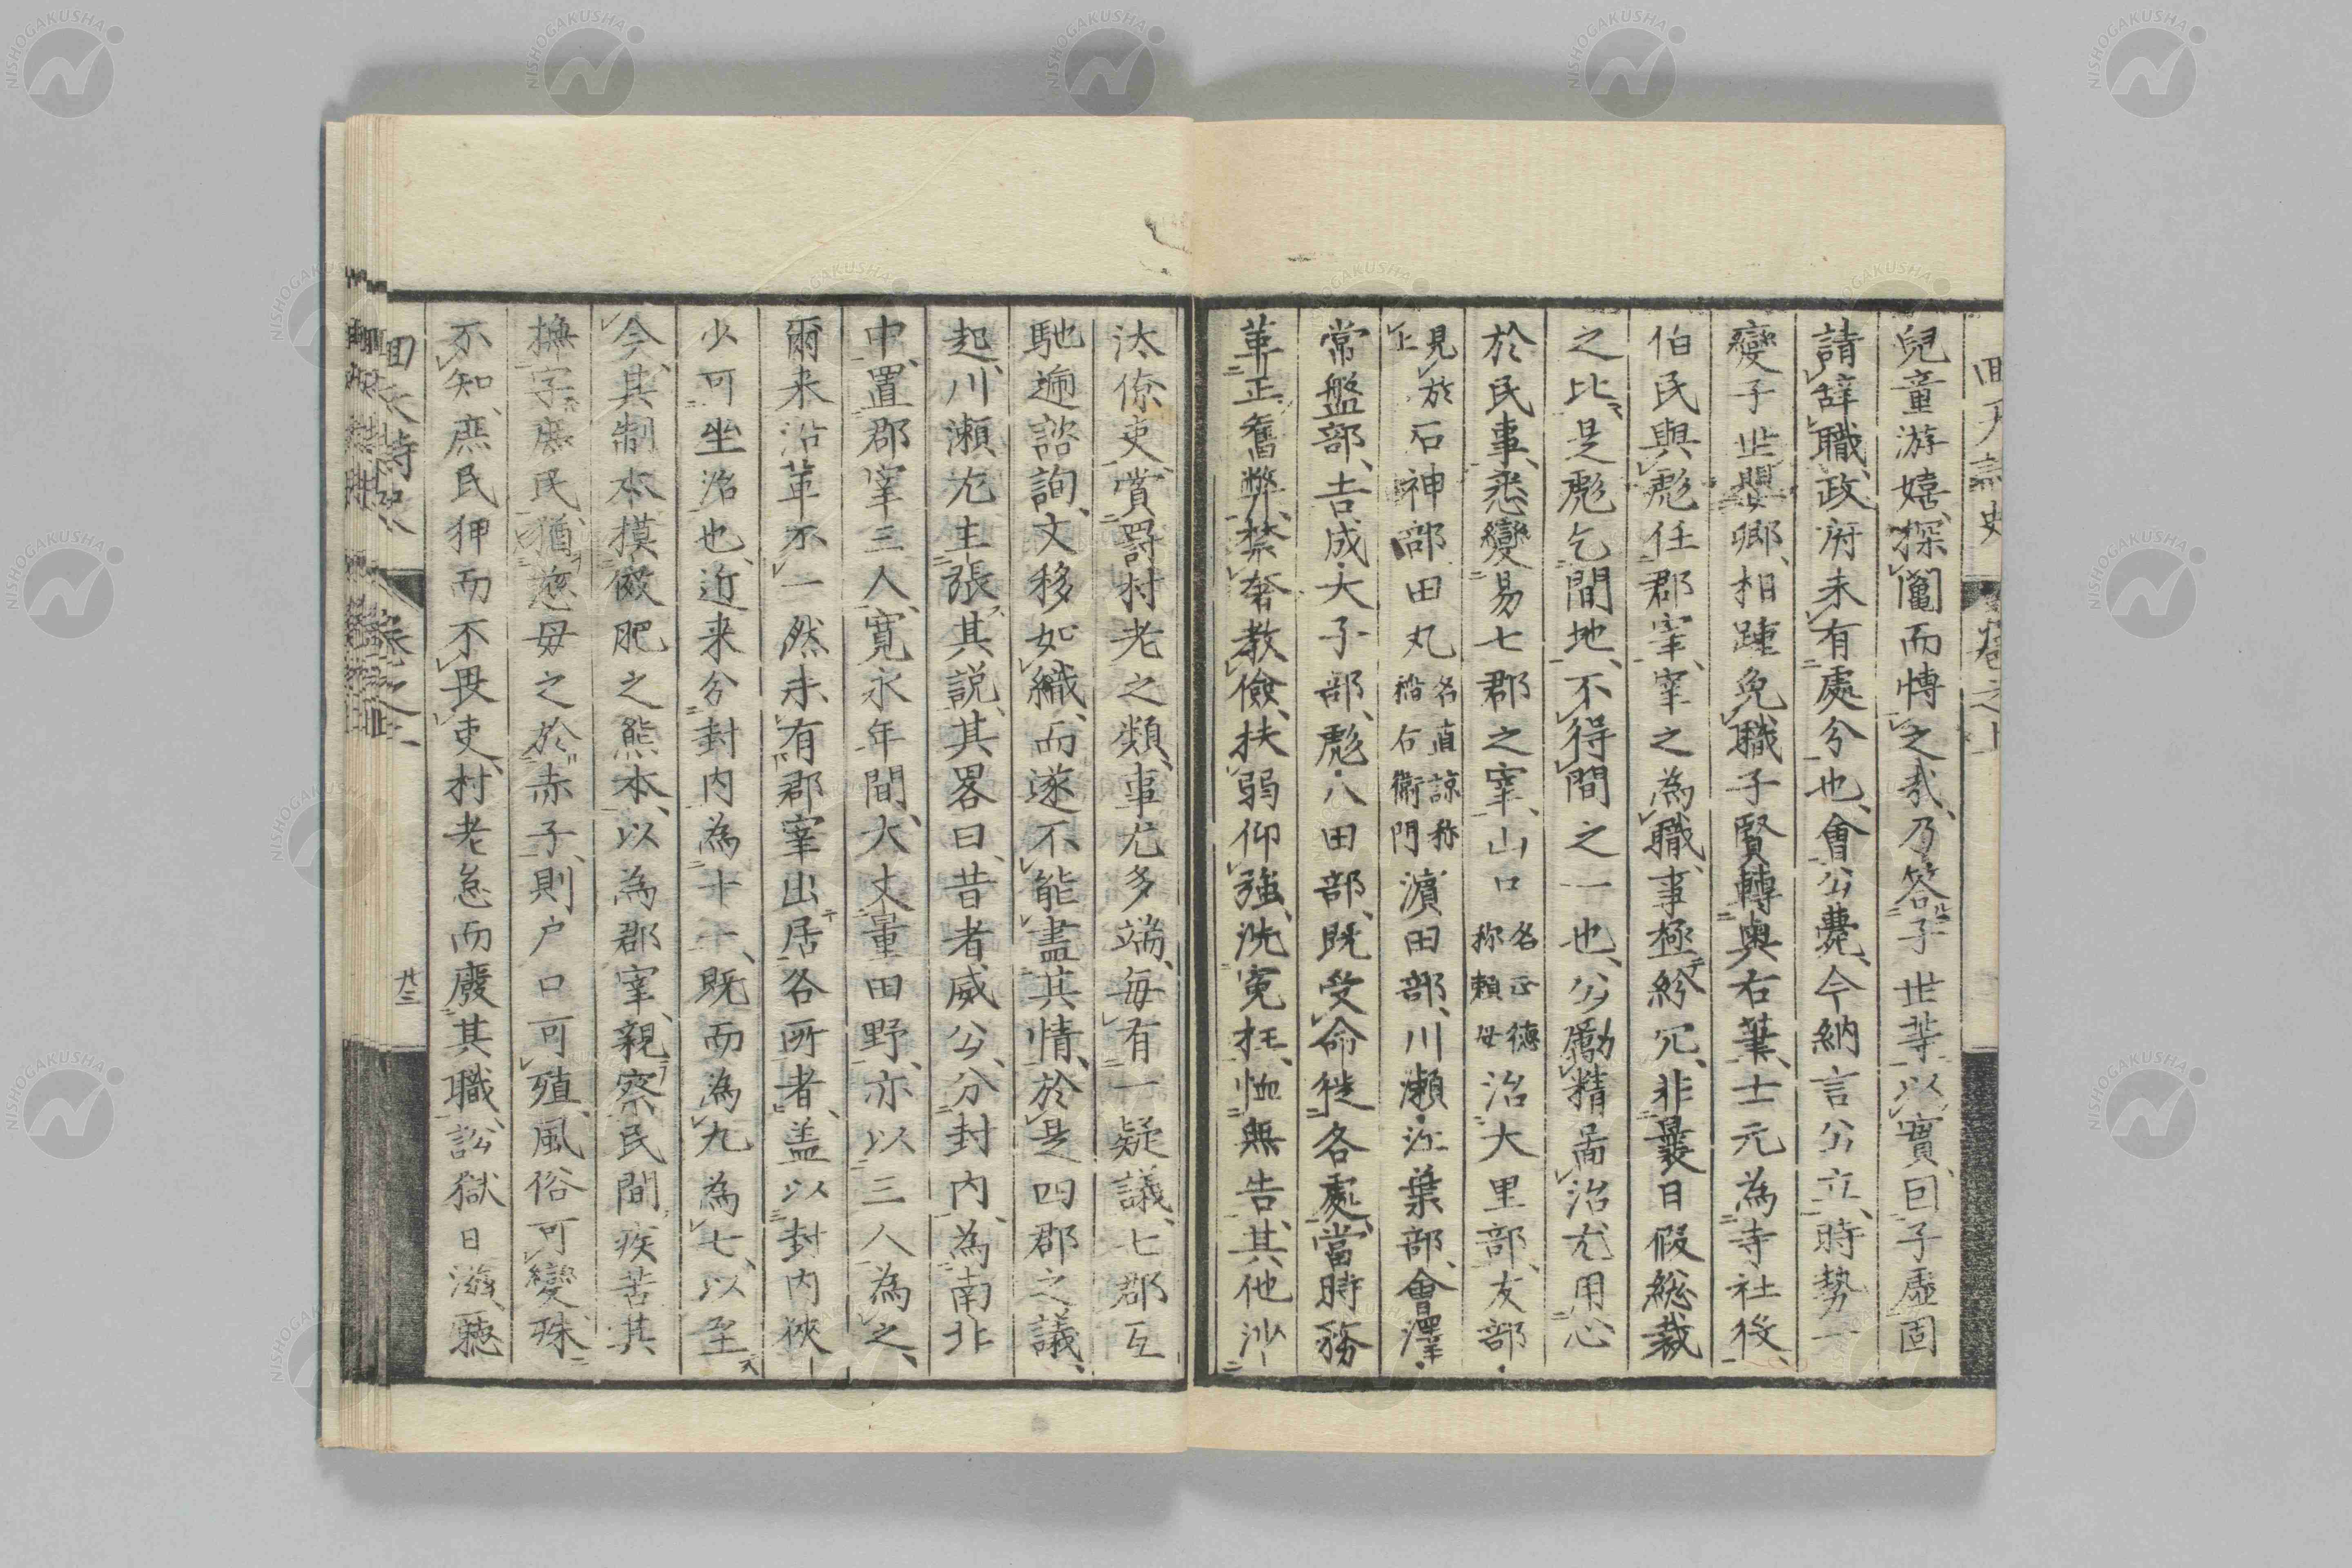 兒童游嬉、探鬮而慱之哉、乃答子世等以實、囙子虛固
請辞職、政府未有處分也、會公薨、今納言公立、時勢一
變子世嬰卿、相踵免職子賢轉奥右筆、士元為寺社役、
伯民與彪任郡宰、宰之為職、事極紛冗、非曩日假総裁
之比、是彪乞間地、不得間之一也、公勵精啚治尤用心
於民事、悉變易七郡之宰、山口名正德称賴母治大里部、友部・
見上於石神部田丸名直諒称稻右衞門濵田部、川瀬・江葉部、會澤・
常盤部、吉成・大子部、彪・八田部、既受命徙各處、當時務
革正舊弊、禁奢教儉、扶弱仰強、洗寃枉、恤無告、其他沙
汰僚吏、賞罸村老之類、事尤多端、毎有一疑議、七郡互
馳逓諮詢、文移如織、而遂不能盡其情、於是四郡之議、
起、川瀬尤主張其説、其畧曰、昔者、威公、分封内、為南北
中、置郡宰三人、寛永年間、大丈量田野、亦以三人為之、
爾来沿革不一然未有郡宰出居各所者、盖以封内狹
少可坐治也、近来分封内為十一、既而為九為七、以至
今、其制本摸倣肥之熊本、以為郡宰、親察民間疾苦其
撫字庶民、猶慈母之於赤子、則户口可殖、風俗可變、殊
不知、庶民狎而不畏吏、村老怠而廢其職、訟獄日滋、聽
回天詩史 卷之上
廿三